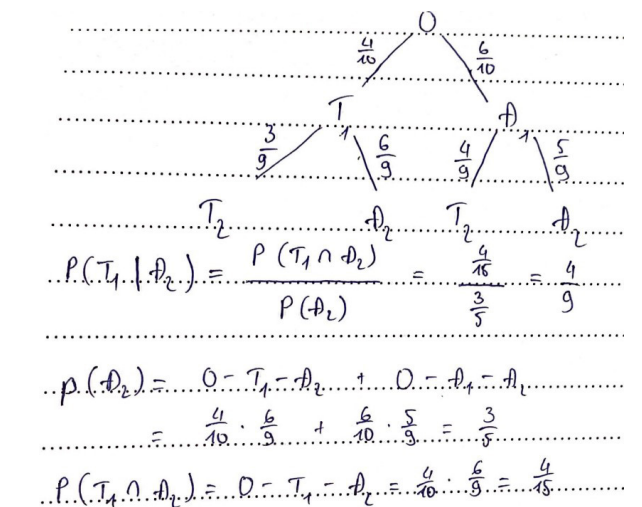 O
4/10 6/10
T₁ Đ₁
3/9 6/9 4/9 5/9
T₂ Đ₂ T₂ Đ₂
P(T₁ | Đ₂) = P(T₁ ∩ Đ₂) / P(Đ₂) = 4/15 / 3/5 = 4/9
P(Đ₂) = O - T₁ - Đ₂ + O - Đ₁ - Đ₂
= 4/10 · 6/9 + 6/10 · 5/9 = 3/5
P(T₁ ∩ Đ₂) = O - T₁ - Đ₂ = 4/10 · 6/9 = 4/15